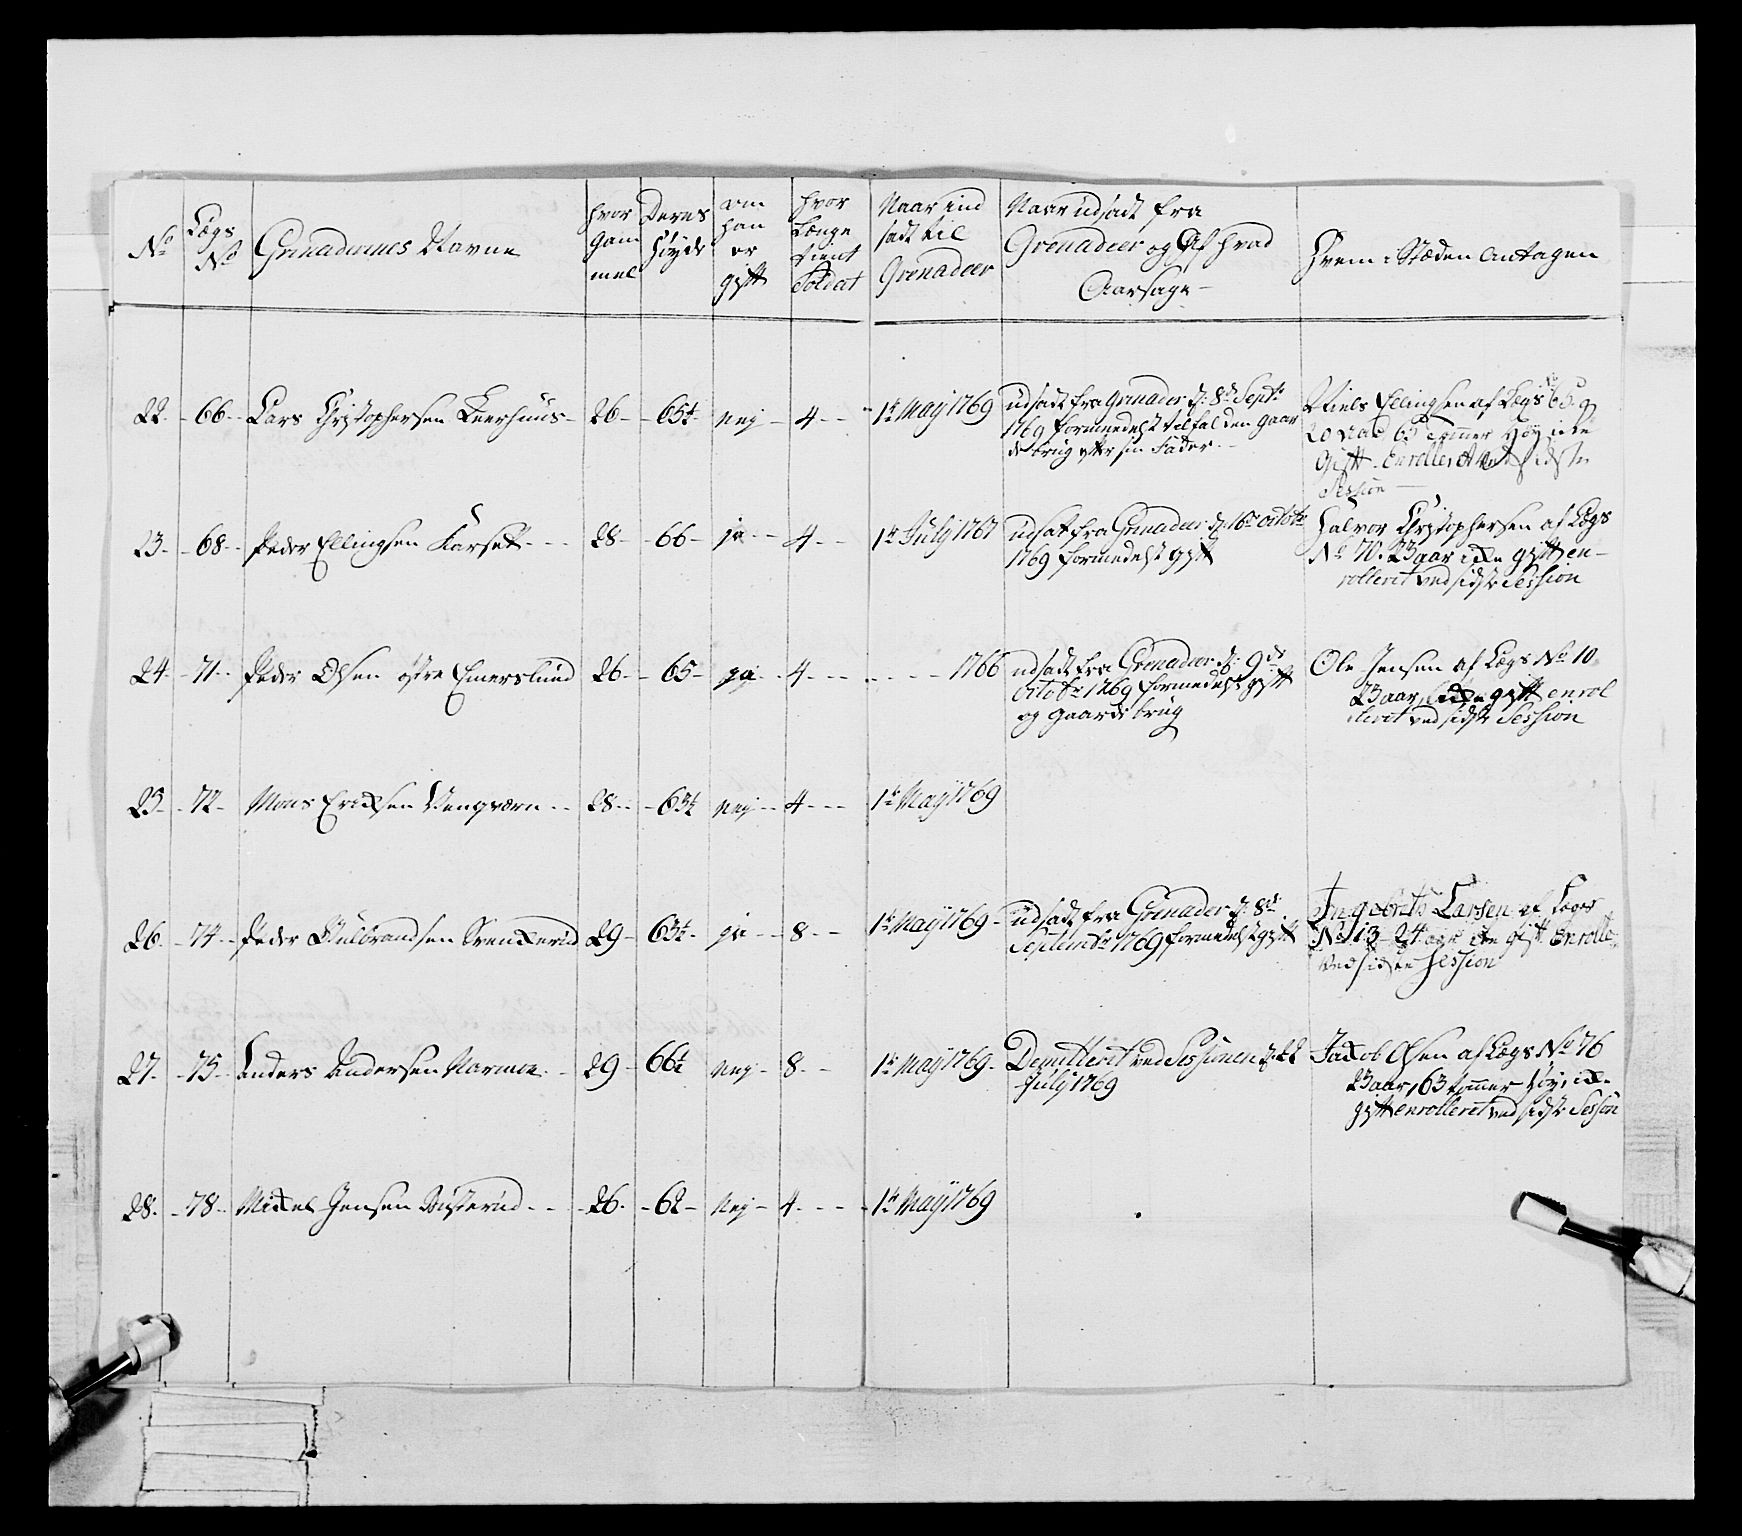 No
Lægs No
Grenaderernes Navne
hvor gam mel
Deres Høyde
om han er gift
hvor Længe tient Soldat
Naar ind sadt til Grenadeer
Naar udsadt fra Grenadeer og Af hvad Aarsage
Hvem i Stæden Antagen
22. 66 Lars Christophersen 26 65½ nej 4 1te May 1769
udsadt fra Grenadeer d. 8de Septbr
1769 formedelst tilfalden Gaar
de brug efter sin Fader
Niels Ellingsen af Lægs 65.
20 aar 65 tommer Høy icke
Gift. Enrolleret ved sidste
Session
23. 68 Peder Ellingsen Karset 28 66 ja 4 1te July 1767
udsat fra Grenadeer d. 16de octobr
1769 formedelst gift
Halvor Christophersen af Lægs
No 70. 23 aar icke gift en-
rolleret ved sidste Session
24. 71 Peder Olsen østre Emerslund 26 65 ja 4 1766
udsadt fra Grenadeer d. 9de
Octobr 1769 formedelst gift
og Gaards brug
Ole Jensen af Lægs No 10
23 aar, icke gift enrol
leret ved sidste Session
25. 72 Mons Erichsen 28 63½ nej 4 1te May 1769
26. 74 Peder Gulbrandsen Svenxerud 29 63½ ja 8 1te May 1769
udsadt fra Grenadeer d. 8de
Septembr 1769 formedelst gift
Ingebrith Larsen af Lægs
No 113 24 aar icke gift Enrolle
ved sidste Session
27. 75 Anders Andersen 29 66½ Nej 8 1te May 1769
Demitteret ved Sessionen d. 22
July 1769
Jacob Olsen af Lægs No 76
23 aar, 63 tommer høy, icke
gift enrolleret ved sidste Session
28. 78 Mickel Jensen 26 62 Nej 4 1te May 1769